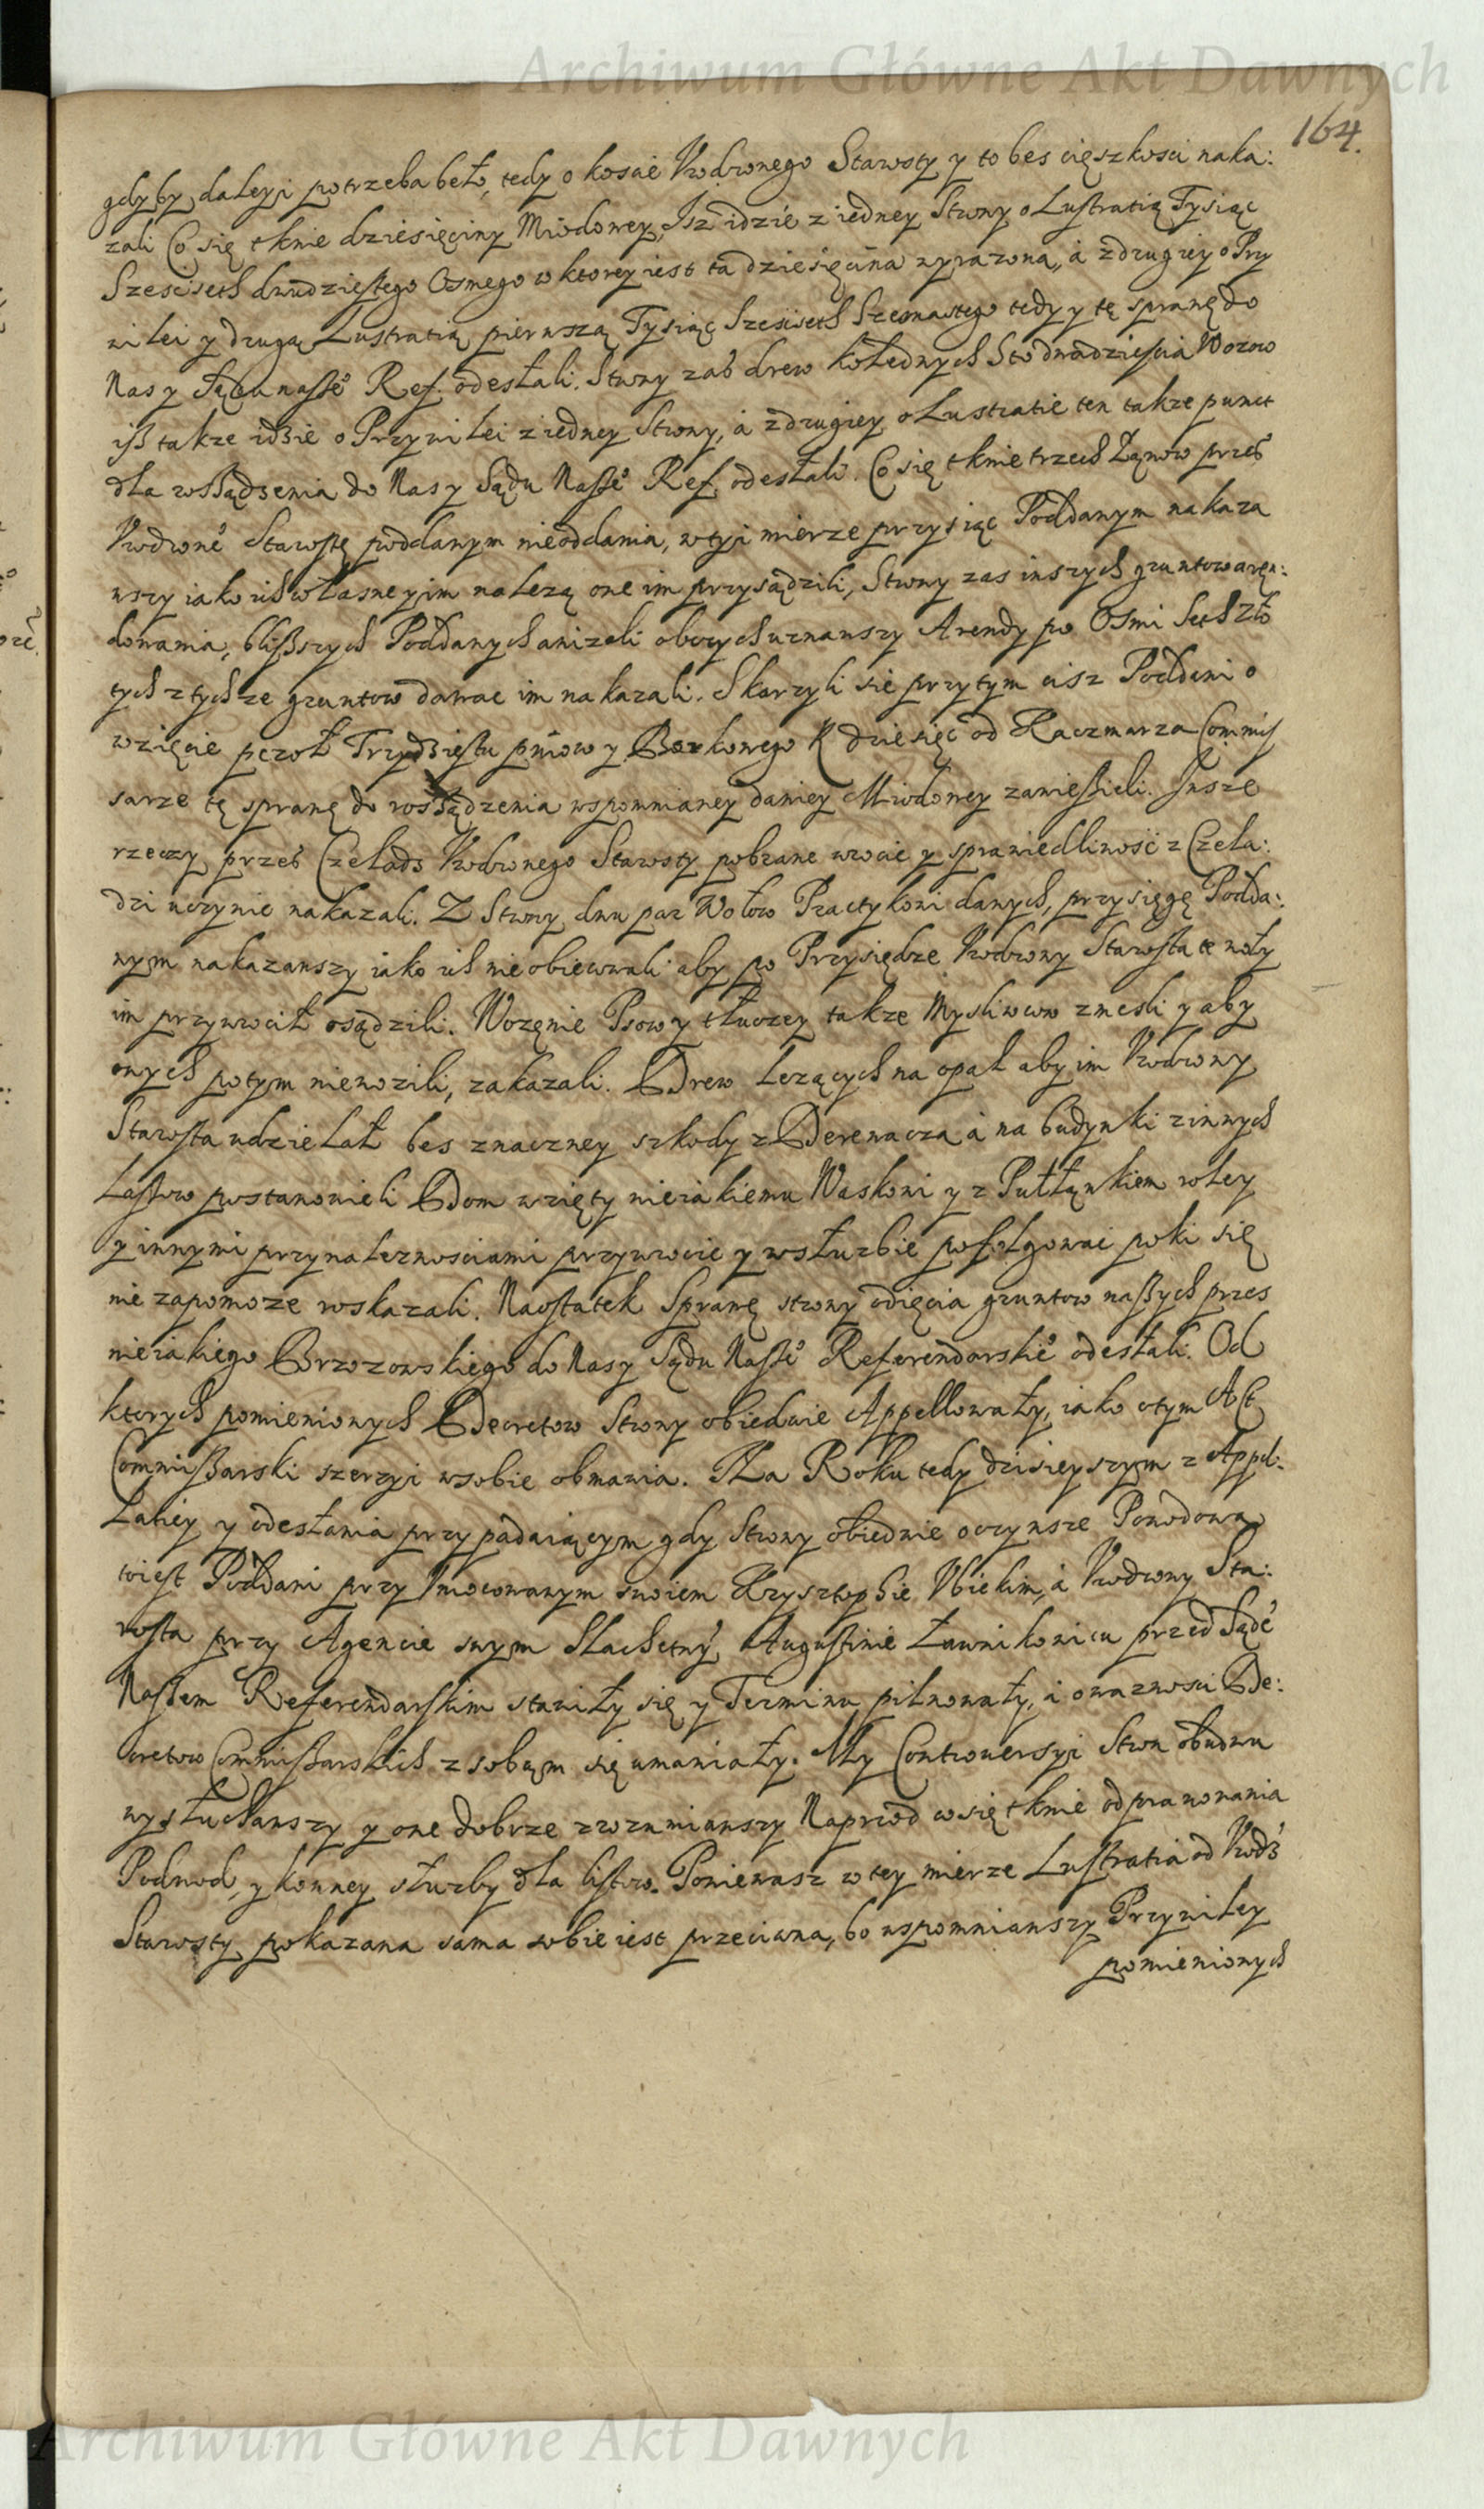 Archiwum Główne Akt Dawnych
164.
gdyby daleyi potrzeba beło, tedy o koscie Vrodzonego Starosty y to bes cięszkosci naka:
zali Co się tknie dziesięciny Miodowey, Isz idzie z iedney Strony o Lustratią Tysiąc
Szescseth dwudziestego Osmego w ktorey iest ta dziesięcina wyrazona, á z drugiey o Przy
wilei y drugą Lustratią pierwszą Tysiąc Szescseth Szesnastego tedy y tę sprawę do
Nas y Sądu nassẽo Ref. odesłali. Strony zas drew kolędnych Sto dwadziescia Wozow
iß takze idzie o Przywilei z iedney Strony, á z drugiey o Lustratie ten takze punct
dla rossądzenia do Nas y Sądu Nassẽo Ref. odesłali. Co się tknie trzech Łanow przes
Vrodzonẽo Starostę poddanym nieoddania, w tyi mierze przysiąc Poddanym nakaza
wszy iako ich własne y im nalezą one im przysądzili, Strony zas inszych gruntow aręn:
dowania, blißszych Poddanych anizeli obcych uznawszy Arendy po Osmi Seth Zło
tych z tychze gruntow dawac im nakazali. Skarzyli się przytym cisz Poddani o
wzięcie pczoł Trzydziestu pniow y Borkowego K dziesięc od Kaczmarza Commis
sarze tę sprawę do rossądzenia wspomnianey daniey Miodowey zawiesieli. Insze
rzeczy przes Czeladz Vrodzonego Starosty pobrane wrocic y sprawiedliwosc z Czela:
dzi uczynic nakazali. Z Strony dwu par Wołow Practykowi danych, przysięgę Podda:
nym nakazawszy iako ich nie obiecowali aby po Przysiędze Vrodzony Starosta te woły
im przywrocił osądzili. Wozęnie Psow y tłuczey takze Mysliwcow zniesli y aby
onych potym niewozili, zakazali. Drew lezących na opał aby im Vrodzony
Starosta udzielał bes znaczney szkody z Derewacza á na budynki z innych
Lassow postanowieli Dom wzięty nieiakiemu Waskowi y z Pułłąnkiem roley
y innymi przynaleznosciami przywrocic y w słuzbie pofolgowac poki się
nie zapomoze roskazali. Naostatek Sprawę strony odięcia gruntow naszych przes
nieiakiego Brzozowskiego do Nas y Sądu Nassẽo Referendarskiẽo odesłali. Od
ktorych pomienionych Decretow Strony obiedwie Appellowały, iako o tym Act
Commissarski szerzyi w sobie obmawia. Na Roku tedy dzisieyszym z Appel-
latiey y odesłania przypadaiącym gdy Strony obiednie oczynsze Powodowa
to iest Poddani przy Umocowanym swoiem Krysztophie Ubiekim, á Vrodzony Sta:
rosta przy Agencie swym Slachetnỹ Augustinie Ławnikowicu przed Sądẽ
Nassem Referendarskim stawiły się y Terminu pilnowały, i o wazności De:
cretow Commissarskich z sobąm się umawiały. My Controversyi Stron obudwu
wysłuchawszy y one dobrze zrozumiawszy Naprzod co się tknie odprawowania
Podwod, y konney słuzby dla listow. Poniewasz w tey mierze Lustratia od Vrodz
Starosty pokazana sama sobie iest przeciwna, bo wspomniawszy Przywiley
pomienionych
Archiwum Główne Akt Dawnych